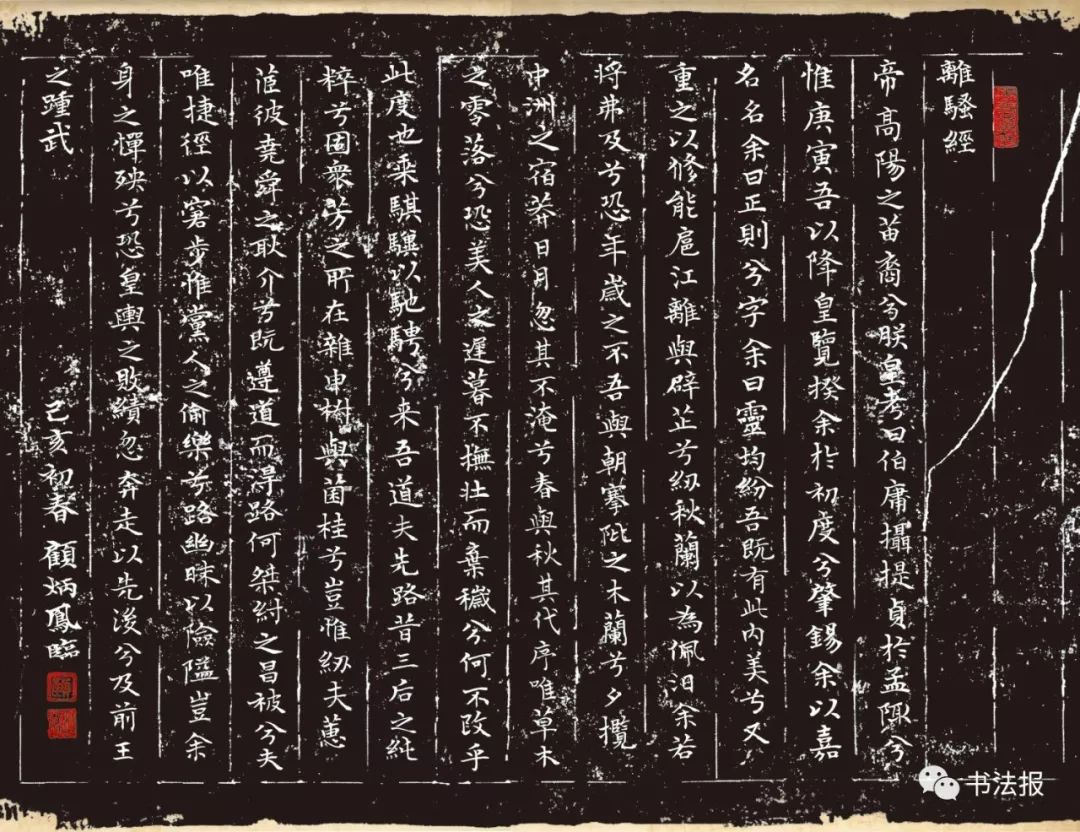 離騷經
帝高陽之苗裔兮朕皇考曰伯庸攝提貞於孟陬兮
惟庚寅吾以降皇覽揆余於初度兮肇錫余以嘉
名名余曰正則兮字余曰靈均紛吾既有此內美兮又
重之以修能扈江離與辟芷兮紉秋蘭以為佩汩余若
将弗及兮恐年歲之不吾與朝搴阰之木蘭兮夕攬
中洲之宿莽日月忽其不淹兮春與秋其代序唯草木
之零落兮恐美人之遲暮不撫壯而棄穢兮何不改乎
此度也乘騏驥以馳騁兮来吾道夫先路昔三后之純
粹兮固衆芳之所在雜申椒與菌桂兮豈惟紉夫蕙
茝彼堯舜之耿介兮既遵道而得路何桀紂之昌被兮夫
唯捷徑以窘步惟黨人之偷樂兮路幽昧以險隘豈余
身之憚殃兮恐皇輿之敗績忽奔走以先後兮及前王
之踵武 己亥初春 顧炳鳳臨
书法报